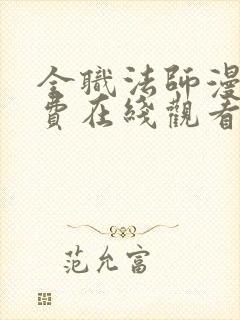 全職法師漫
費在綫觀看
范允富